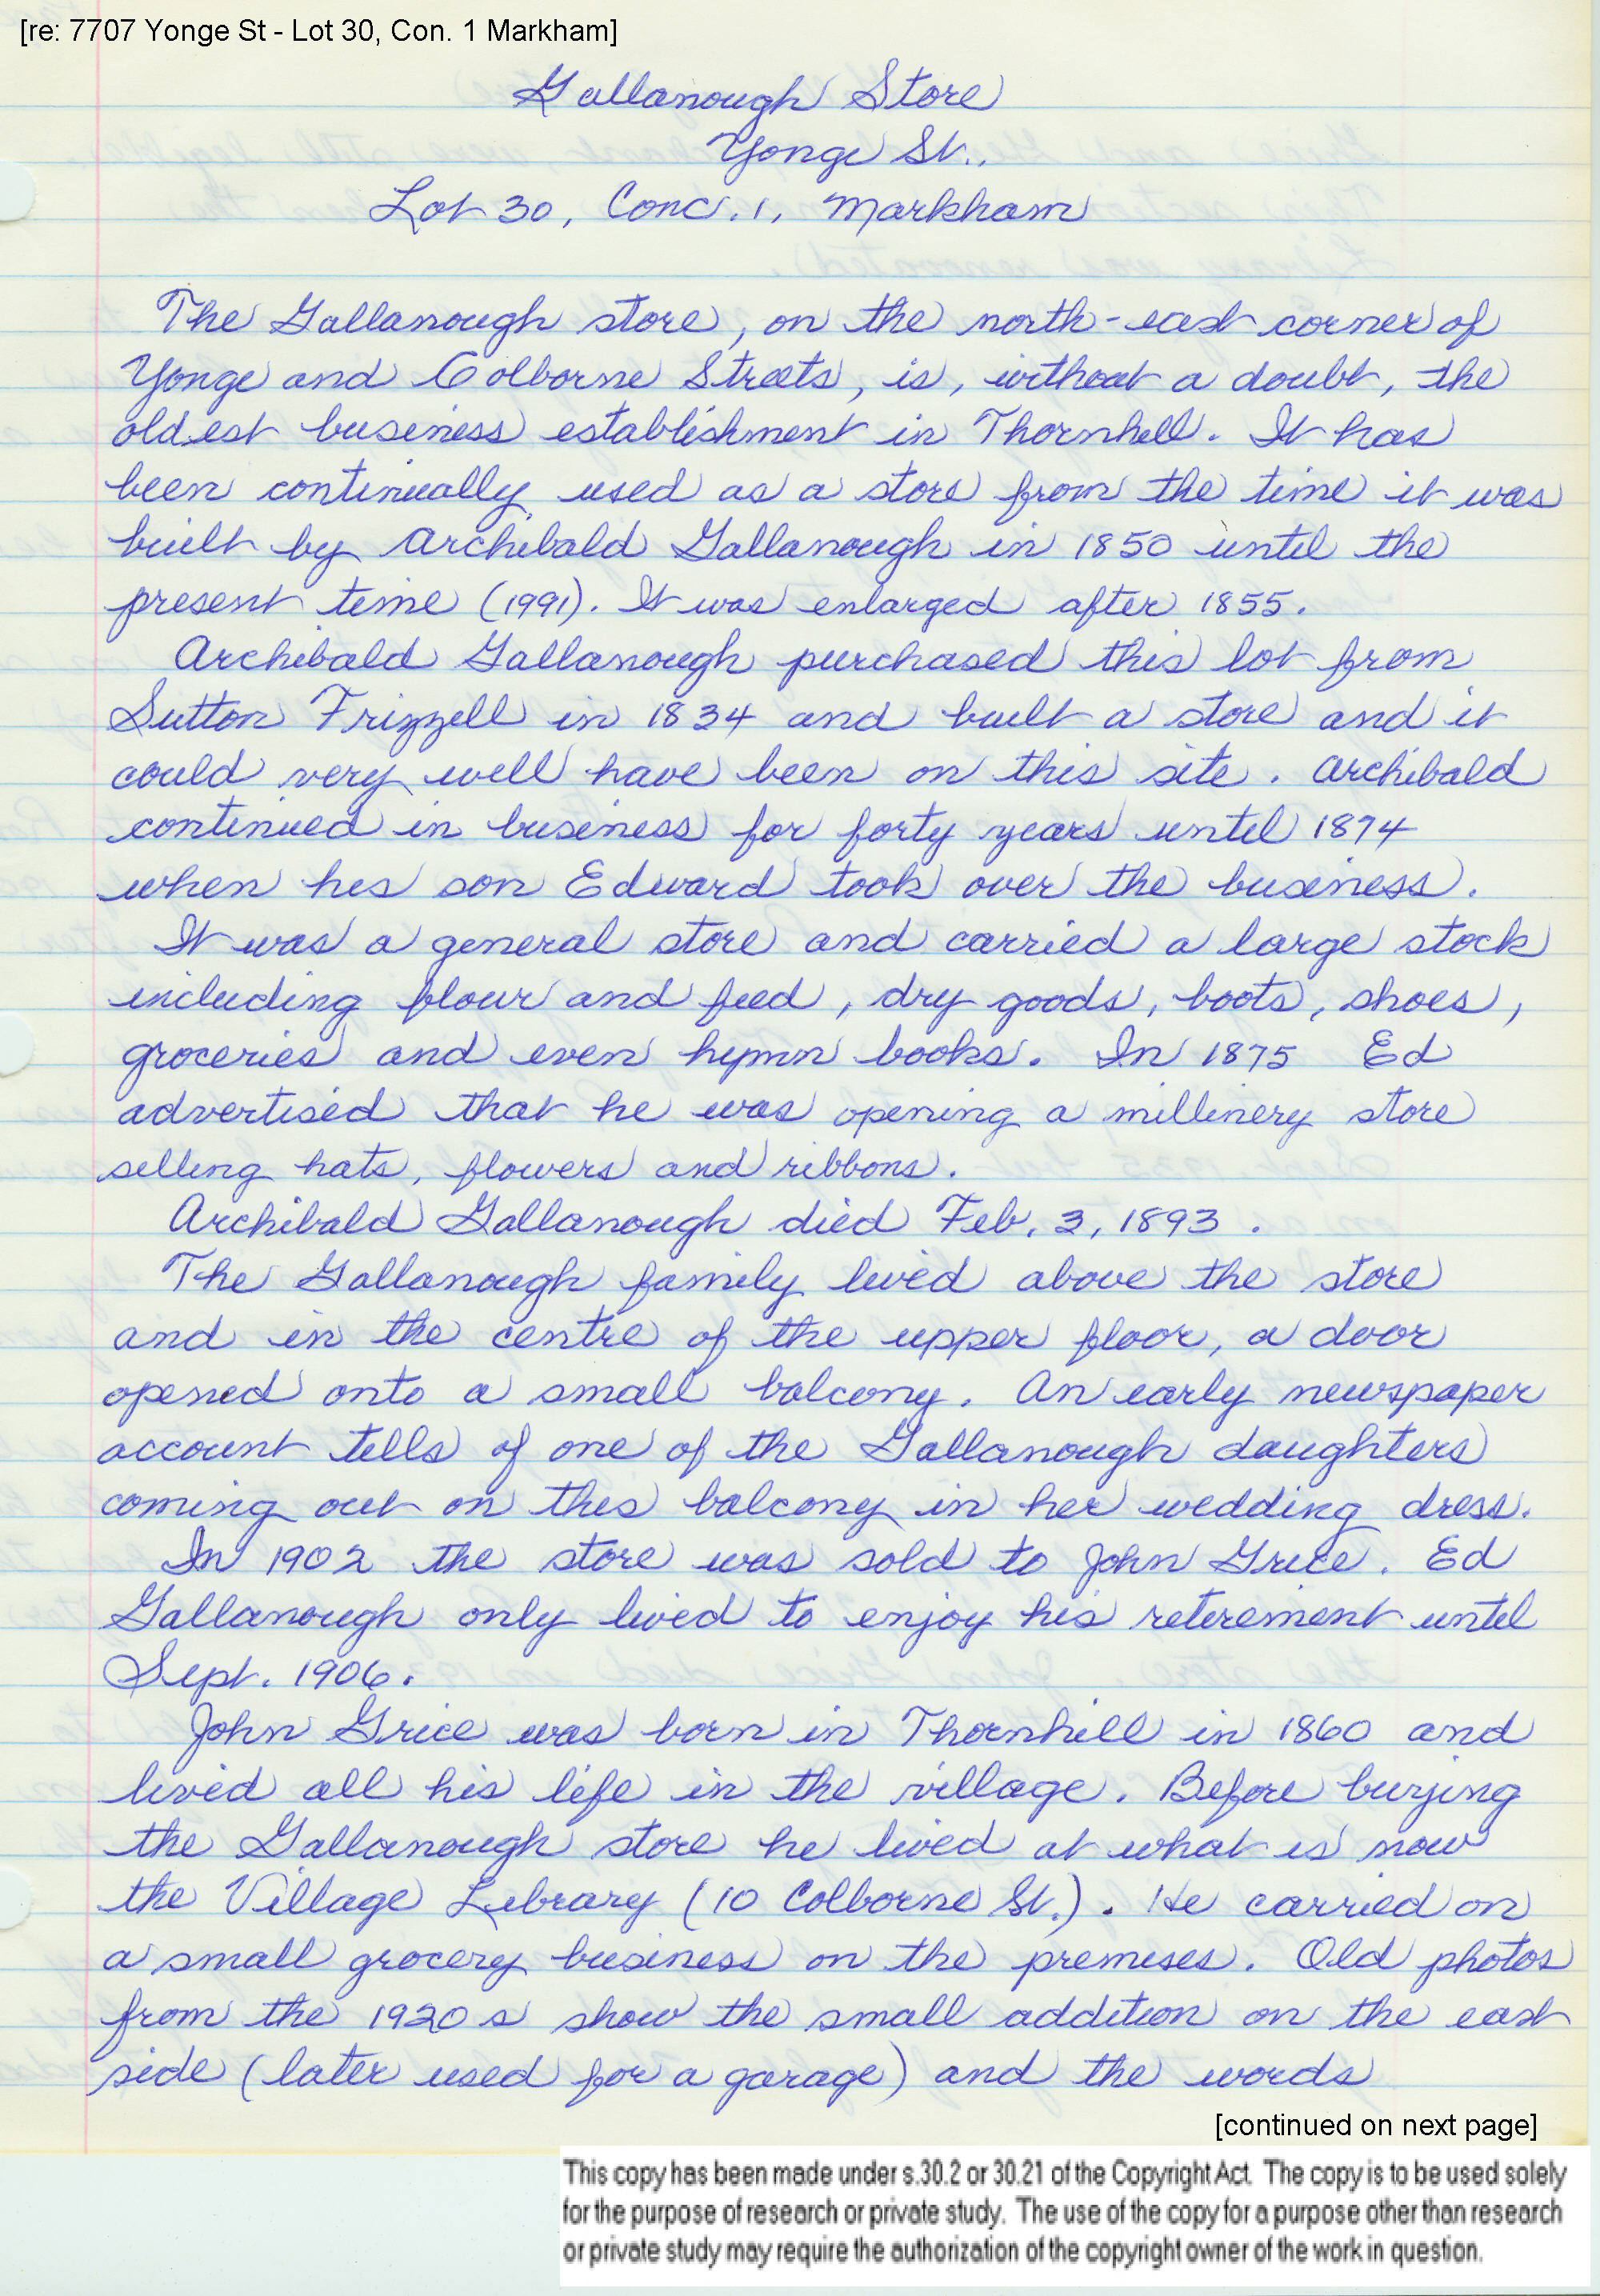 [re: 7707 Yonge St - Lot 30, Con. 1 Markham]
Gallanough Store
Yonge St.,
Lot 30, Conc. 1, Markham
The Gallanough store, on the north-east corner of
Yonge and Colborne Streets, is, without a doubt, the
oldest business establishment in Thornhill. It has
been continually used as a store from the time it was
built by Archibald Gallanough in 1850 until the
present time (1991). It was enlarged after 1855.
Archibald Gallanough purchased this lot from
Sutton Frizzell in 1834 and built a store and it
could very well have been on this site. Archibald
continued in business for forty years until 1874
when his son Edward took over the business.
It was a general store and carried a large stock
including flour and feed, dry goods, boots, shoes,
groceries and even hymn books. In 1875 Ed
advertised that he was opening a millinery store
selling hats, flowers and ribbons.
Archibald Gallanough died Feb. 3, 1893.
The Gallanough family lived above the store
and in the centre of the upper floor, a door
opened onto a small balcony. An early newspaper
account tells of one of the Gallanough daughters
coming out on this balcony in her wedding dress.
In 1902 the store was sold to John Grice. Ed
Gallanough only lived to enjoy his retirement until
Sept. 1906.
John Grice was born in Thornhill in 1860 and
lived all his life in the village. Before buying
the Gallanough store he lived at what is now
the Village Library (10 Colborne St.). He carried on
a small grocery business on the premises. Old photos
from the 1920s show the small addition on the east
side (later used for a garage) and the words
[continued on next page]
This copy has been made under s.30.2 or 30.21 of the Copyright Act. The copy is to be used solely
for the purpose of research or private study. The use of the copy for a purpose other than research
or private study may require the authorization of the copyright owner of the work in question.